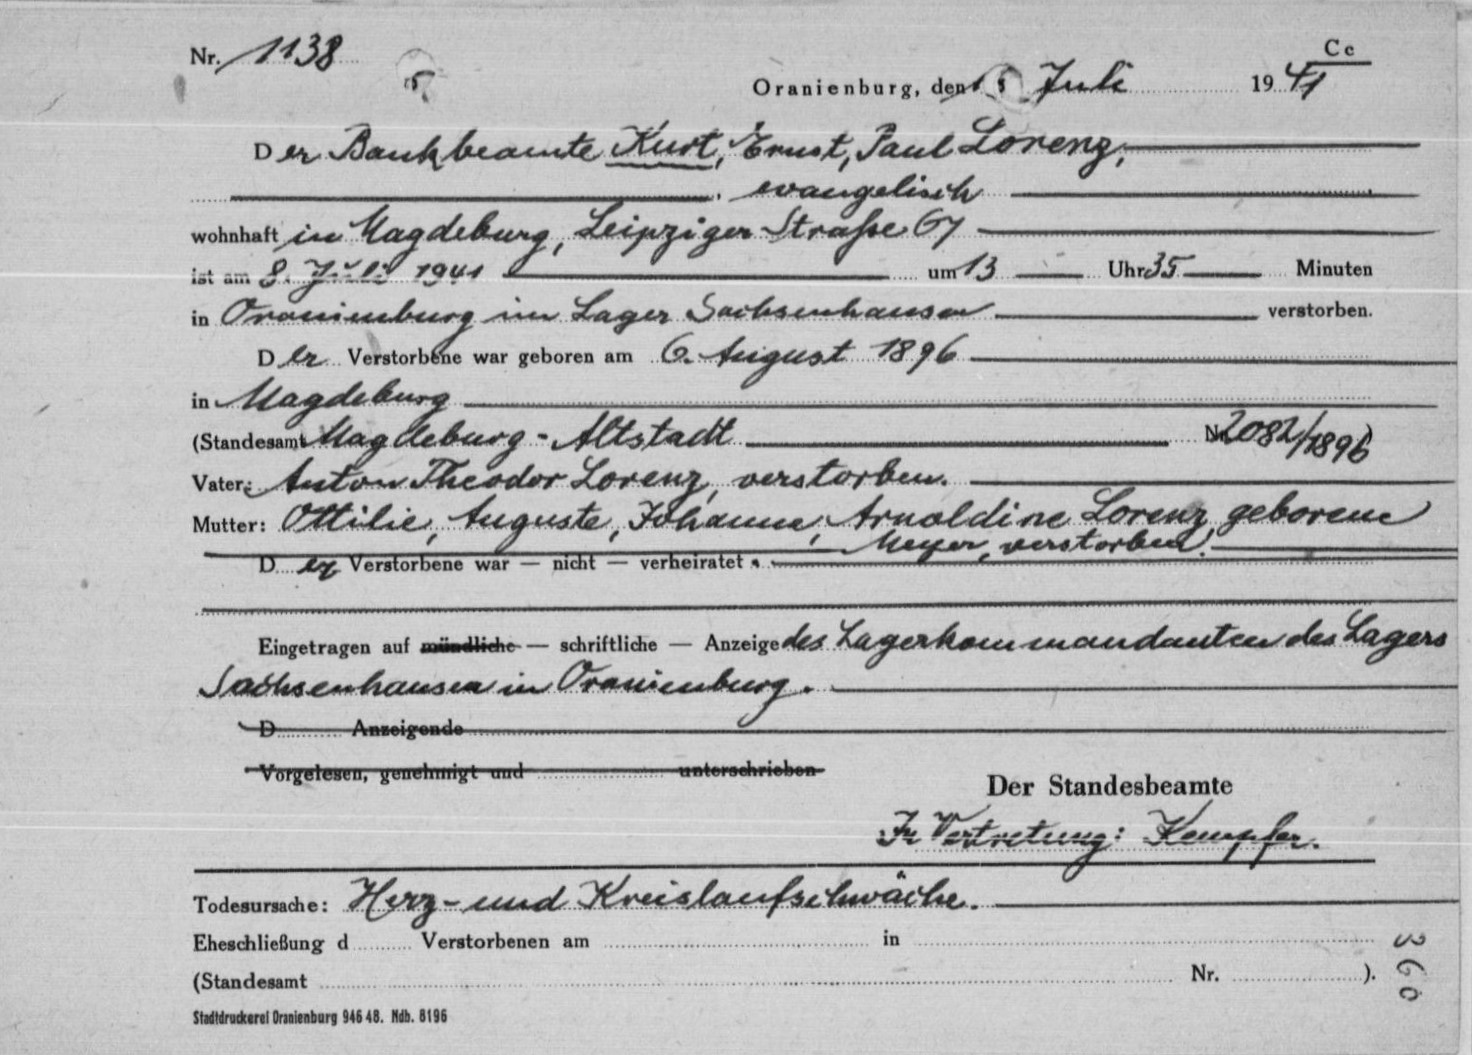 Nr. 1138
Cc
Oranienburg, den Juli 1941
Der Bankbeamte Kurt, Ernst, Paul Lorenz,
evangelisch
wohnhaft in Magdeburg, Leipziger Straße 67
ist am 8. Juli 1941 um 13 Uhr 35 Minuten
in Oranienburg im Lager Sachsenhausen verstorben.
Der Verstorbene war geboren am 6. August 1896
in Magdeburg
(Standesamt Magdeburg-Altstadt Nr. 2082/1896)
Vater: Anton Theodor Lorenz, verstorben.
Mutter: Ottilie, Auguste, Johanne, Arnoldine Lorenz, geborene
Meyer, verstorben.
Der Verstorbene war — nicht — verheiratet.
Eingetragen auf mündliche — schriftliche — Anzeige des Lagerkommandanten des Lagers
Sachsenhausen in Oranienburg.
D Anzeigende
Vorgelesen, genehmigt und unterschrieben
Der Standesbeamte
In Vertretung: Kempfer.
Todesursache: Herz- und Kreislaufschwäche.
Eheschließung d Verstorbenen am in
(Standesamt Nr. ).
360
Stadtdruckerei Oranienburg 946 48. Ndb. 8196